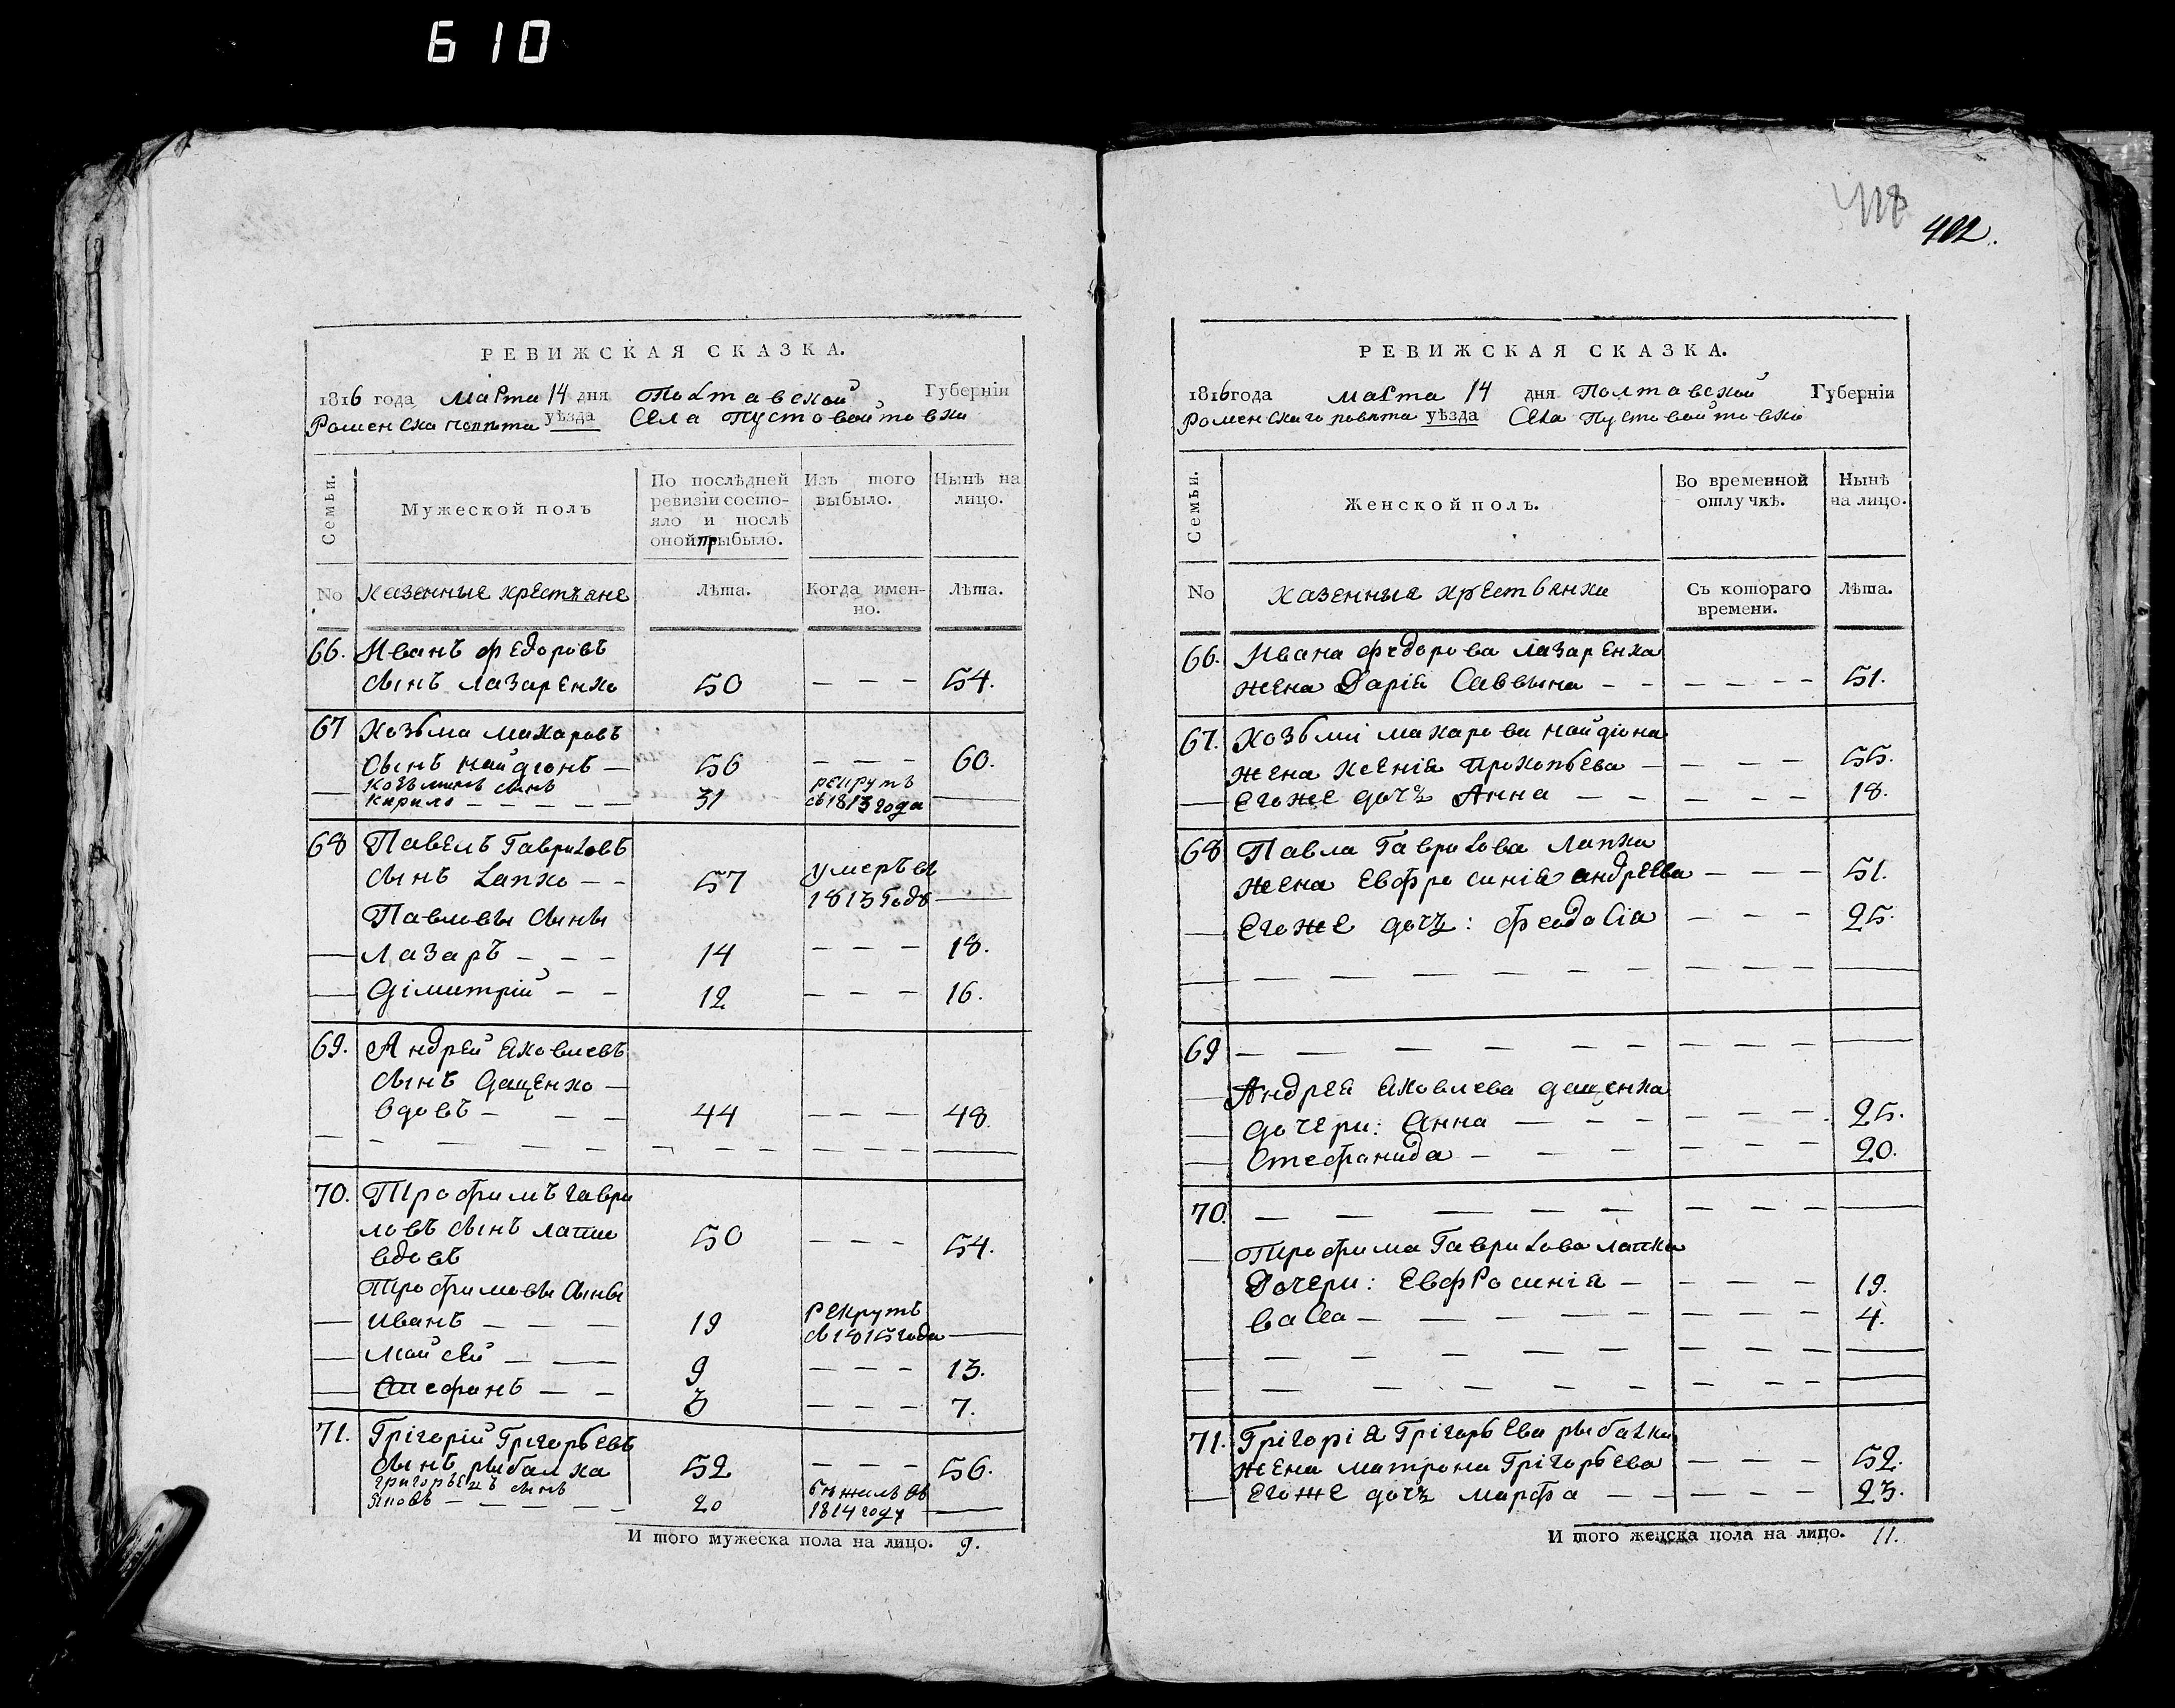 610
418
402.
РЕВИЖСКАЯ СКАЗКА.
1816 года марта 14 дня Полтавской Губернїи
Роменска повѣта уѣзда Села Пустовойтовки
Семьи.
Мужеской полъ
По послѣдней
ревизїи состо-
яло и послѣ
оной прыбыло.
Изъ того
выбыло.
Нынѣ на
лицо.
No
Казенные крестьяне
Лѣта.
Когда имен-
но.
Лѣта.
66. Иванъ Федоровъ
сынъ Лазаренко 50 — — — 54.
67 Козьма Макаровъ
сынъ Найдюнъ — 56 — — — 60.
Козьминъ сынъ рекрутъ
Кирило — — — — — 31 съ 1813 года —
68 Павелъ Гавриловъ
сынъ Лапко — — 57 умеръ въ
1813 годѣ —
Павловы сыны
— Лазаръ — — — 14 — — — 18.
— Димитрій — — 12 — — — 16.
69. Андрей Яковлевъ
сынъ Дащенко —
вдовъ — — — 44 — — — 48.
70. Трофимъ Гаври
ловъ сынъ Лапко 50 — — — 54.
вдовъ
Трофимовы сыны
— Иванъ — — — 19 рекрутъ
съ 1815 года —
— Мойсей — — 9 — — — 13.
— Стефанъ — — 3 — — — 7.
71. Грігорій Грігорьевъ
сынъ Рыбалка 52 — — — 56.
Григорьевъ сынъ бѣжалъ въ
Яковъ — — — — — 20 1814 году —
И того мужеска пола на лицо. 9.
РЕВИЖСКАЯ СКАЗКА.
1816 года марта 14 дня Полтавской Губернїи
Роменскаго повѣта уѣзда Села Пустовойтовки
Семьи.
Женской полъ.
Во временной
отлучкѣ.
Нынѣ
на лицо.
No
Казенные крестьянки
Съ котораго
времени.
Лѣта.
66. Ивана Федорова Лазаренка
жена Дарія Саввына — — — — — — 51.
67. Козьми Макарова Найдюна
жена Ксенія Прокопьева — — — — 55.
— Егоже дочь Анна — — — — — 18.
68 Павла Гаврилова Лапка
жена Евфросинія Андреева — — — 51.
— Егоже дочь: Феодосіа — — — 25.
69 — — — — — — — — — —
— Андрея Яковлева Дащенка
— дочери: Анна — — — — — — 25.
— Стефанида — — — — — — — 20.
70. — — — — — — — — — —
— Трофима Гаврилова Лапка
Дочери: Евфросинія — — — — 19.
Васса — — — — — — — — 4.
71. Грігорія Грігорьева Рыбалки
жена Матрона Грігорьева — — — 52.
— Егоже дочь Марфа — — — — — 23.
И того женска пола на лицо. 11.